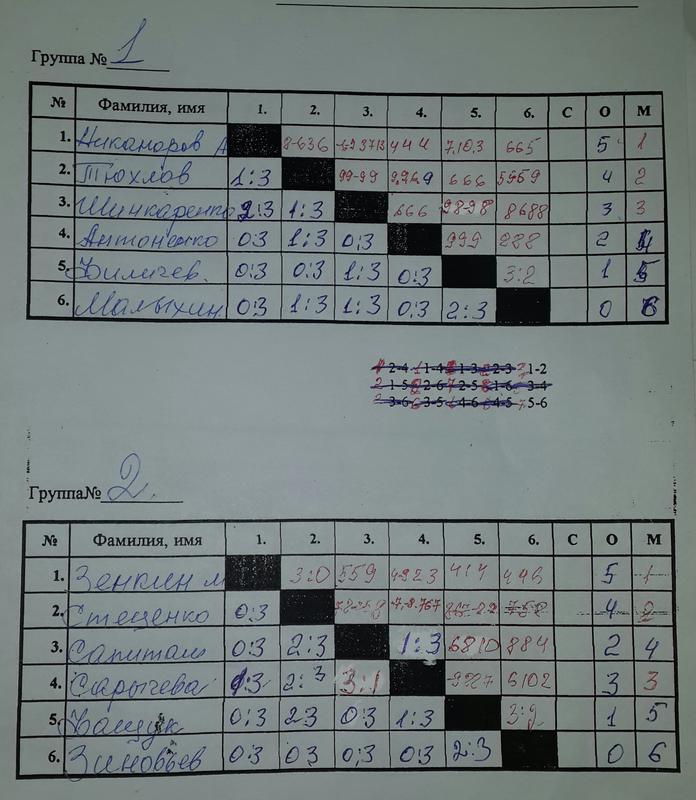 Группа № 1
№ Фамилия, имя 1. 2. 3. 4. 5. 6. С О М
1. Никаноров А 8-636 444 7,10,3 665 5 1
2. Тюхлов 1:3 99-99 666 5959 4 2
3. Шинкаренко 2:3 1:3 666 98-98 8688 3 3
4. Антоненко 0:3 1:3 0:3 999 288 2 4
5. 0:3 0:3 1:3 0:3 3:2 1 5
6. Малыхин 0:3 1:3 1:3 0:3 2:3 0 6
2-4 1-4 1-3 2-3 1-2
1-5 2-6 2-5 1-6 3-4
3-6 3-5 4-6 4-5 5-6
Группа№ 2.
№ Фамилия, имя 1. 2. 3. 4. 5. 6. С О М
1. Зенкин м 3:0 559 4923 414 446 5 1
2. Стеценко 0:3 4 2
3. 0:3 2:3 1:3 6810 884 2 4
4. Сарычева 1:3 2:3 3:1 6102 3 3
5. Кащук 0:3 23 0:3 1:3 3:2 1 5
6. Зиновьев 0:3 03 0;3 0:3 2:3 0 6